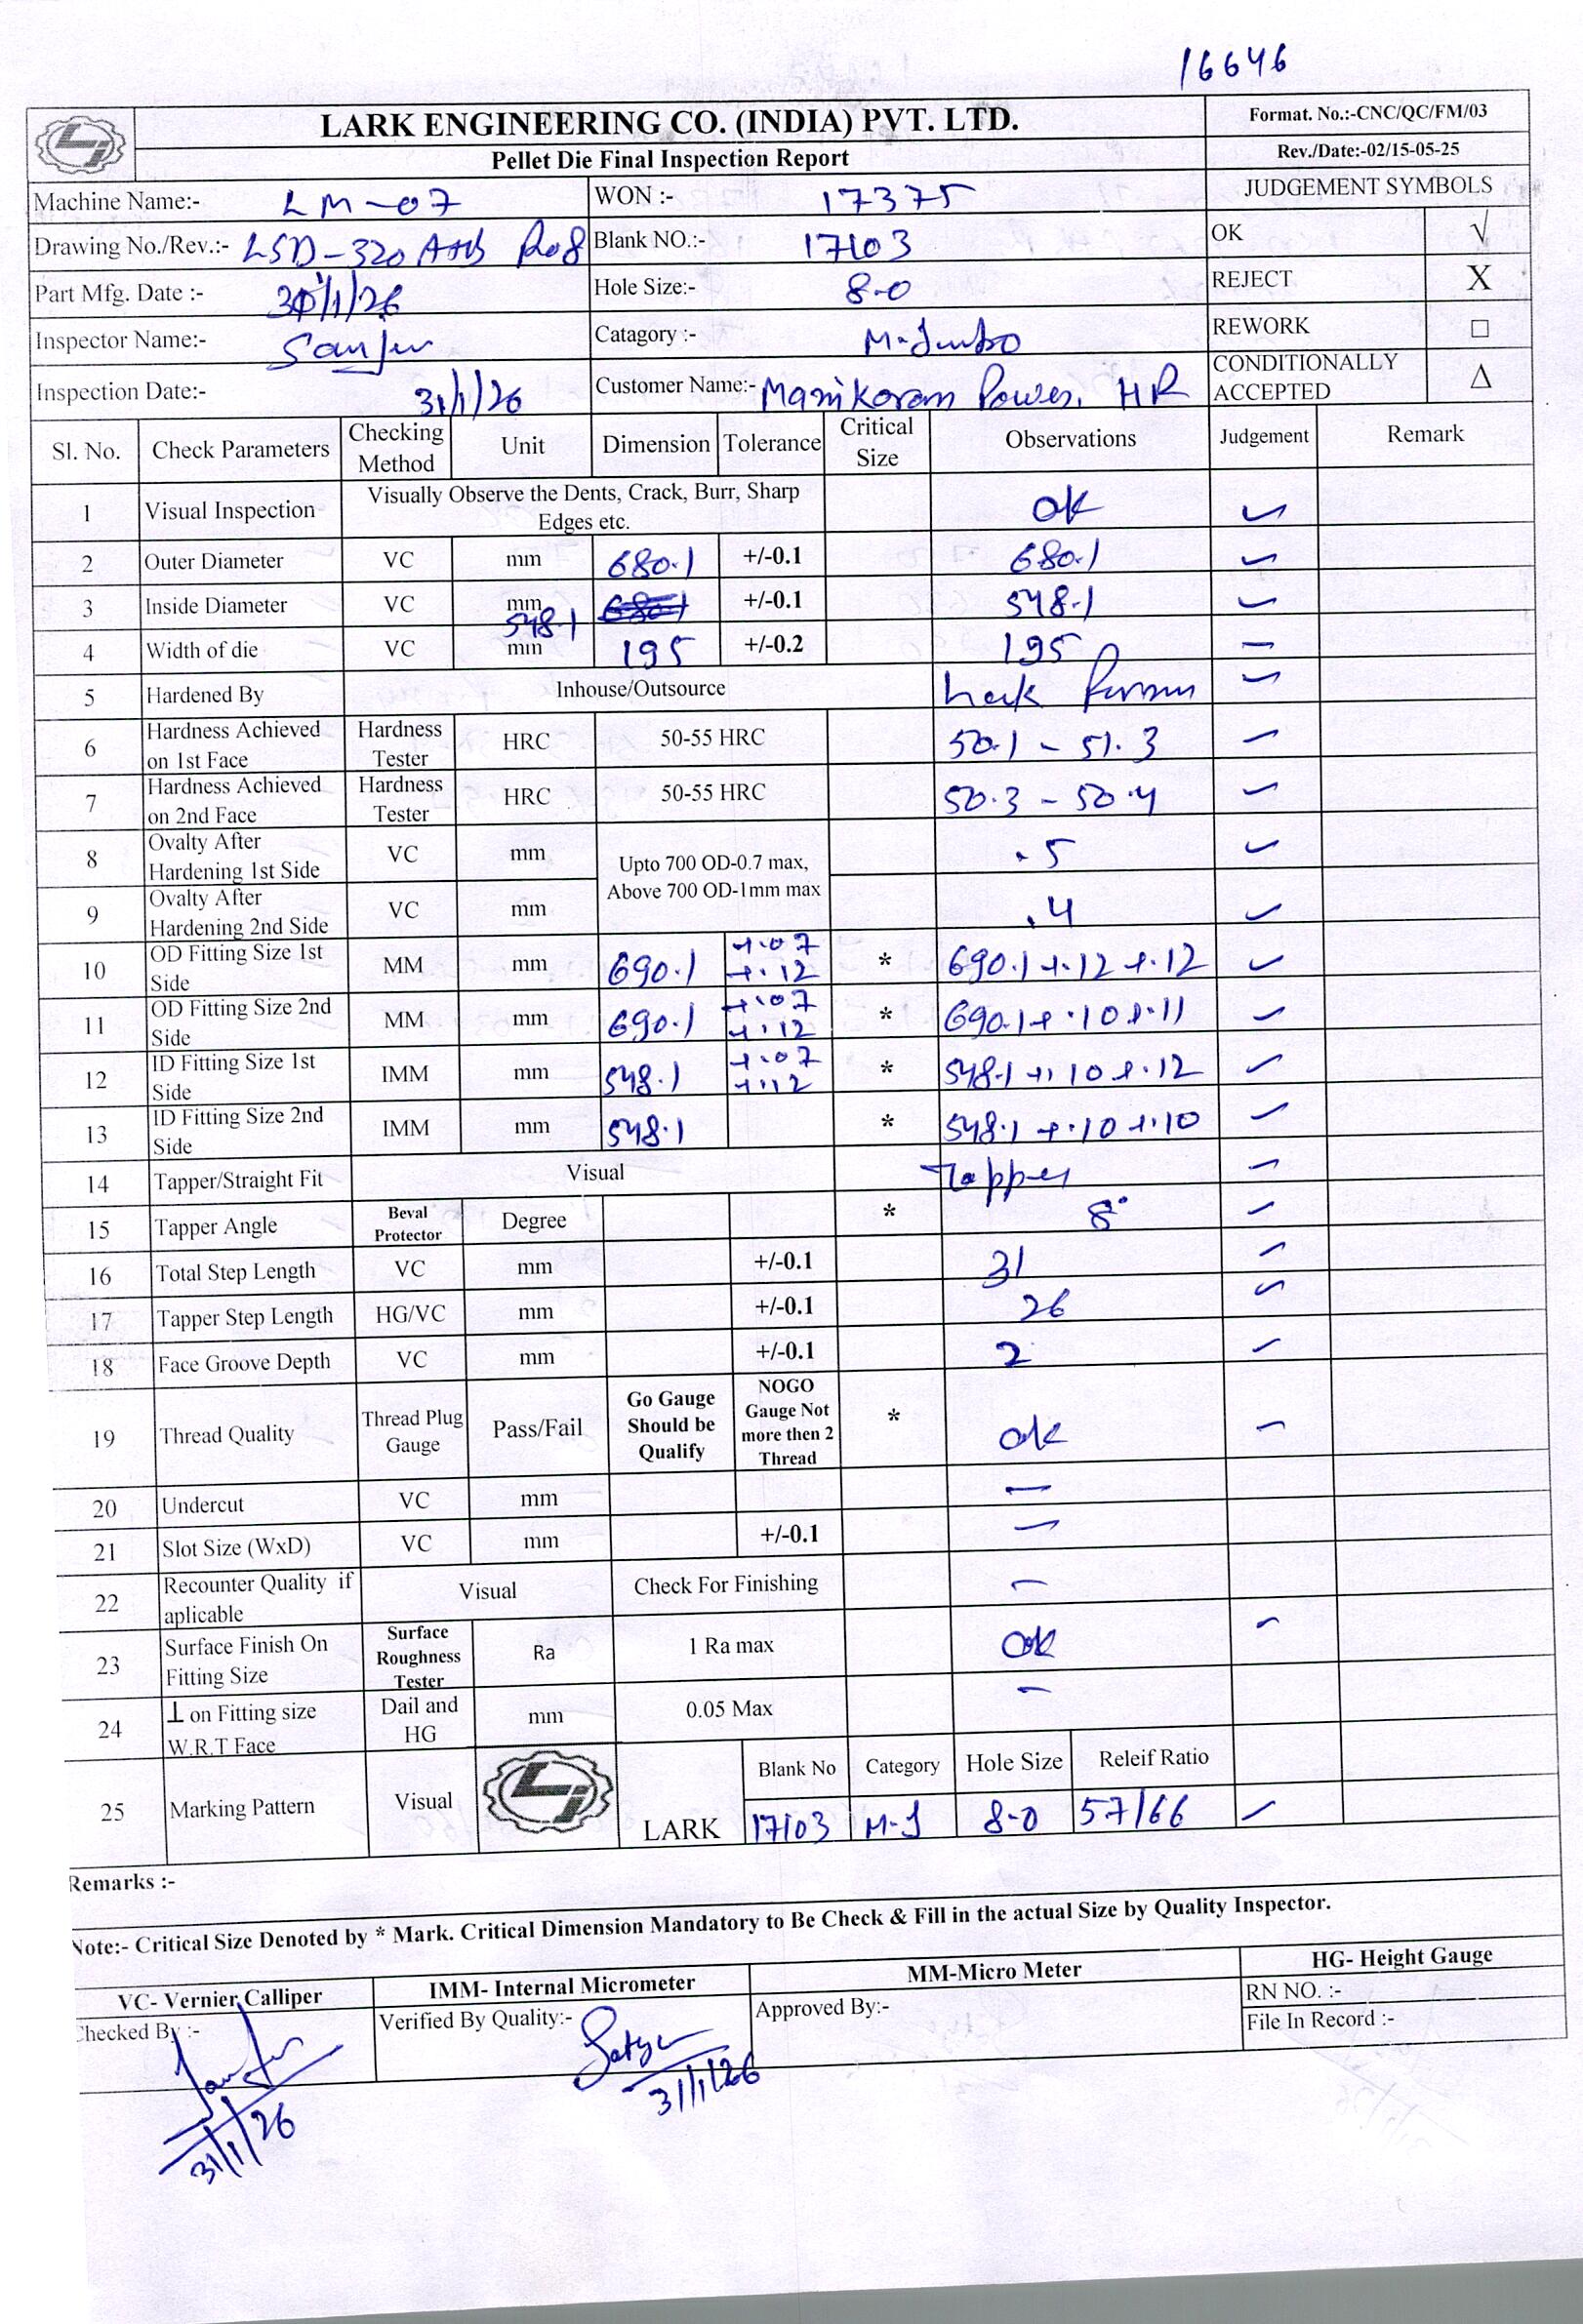 16646
LARK ENGINEERING CO. (INDIA) PVT. LTD.
Format. No.:-CNC/QC/FM/03
Pellet Die Final Inspection Report
Rev./Date:-02/15-05-25
Machine Name:- LM-07 WON :- 17375 JUDGEMENT SYMBOLS
Drawing No./Rev.:- LSD-320 R08 Blank NO.:- 17103 OK √
Part Mfg. Date :- 1/26 Hole Size:- 8-0 REJECT X
Inspector Name:- Catagory :- REWORK □
Inspection Date:- 31/1/26 Customer Name:- Manikaran Power, HR CONDITIONALLY ACCEPTED Δ
Sl. No. Check Parameters Checking Method Unit Dimension Tolerance Critical Size Observations Judgement Remark
1 Visual Inspection Visually Observe the Dents, Crack, Burr, Sharp Edges etc. ok ✓
2 Outer Diameter VC mm 680.1 +/-0.1 680.1 ✓
3 Inside Diameter VC mm 548.1 +/-0.1 548.1 ✓
4 Width of die VC mm 195 +/-0.2 195 –
5 Hardened By Inhouse/Outsource ✓
6 Hardness Achieved on 1st Face Hardness Tester HRC 50-55 HRC 50.1 - 51.3 ✓
7 Hardness Achieved on 2nd Face Hardness Tester HRC 50-55 HRC 50.3 - 50.4 ✓
8 Ovalty After Hardening 1st Side VC mm Upto 700 OD-0.7 max, Above 700 OD-1mm max .5 ✓
9 Ovalty After Hardening 2nd Side VC mm .4 ✓
10 OD Fitting Size 1st Side MM mm 690.1 +.07 +.12 * 690.1 +.12 +.12 ✓
11 OD Fitting Size 2nd Side MM mm 690.1 +.07 +.12 * 690.1 + .10 +.11 ✓
12 ID Fitting Size 1st Side IMM mm 548.1 +.07 +.12 * 548.1 +.10 +.12 ✓
13 ID Fitting Size 2nd Side IMM mm 548.1 * 548.1 +.10 +.10 ✓
14 Tapper/Straight Fit Visual Tapper ✓
15 Tapper Angle Beval Protector Degree * 8° ✓
16 Total Step Length VC mm +/-0.1 31 ✓
17 Tapper Step Length HG/VC mm +/-0.1 26 ✓
18 Face Groove Depth VC mm +/-0.1 2 ✓
19 Thread Quality Thread Plug Gauge Pass/Fail Go Gauge Should be Qualify NOGO Gauge Not more then 2 Thread * ok ✓
20 Undercut VC mm –
21 Slot Size (WxD) VC mm +/-0.1 –
22 Recounter Quality if aplicable Visual Check For Finishing –
23 Surface Finish On Fitting Size Surface Roughness Tester Ra 1 Ra max ok ✓
24 ⊥ on Fitting size W.R.T Face Dail and HG mm 0.05 Max –
25 Marking Pattern Visual LARK Blank No Category Hole Size Releif Ratio
17103 M-J 8-0 57/66 ✓
Remarks :-
Note:- Critical Size Denoted by * Mark. Critical Dimension Mandatory to Be Check & Fill in the actual Size by Quality Inspector.
VC- Vernier Calliper IMM- Internal Micrometer MM-Micro Meter HG- Height Gauge
Checked By :- Verified By Quality:- Approved By:- RN NO. :-
File In Record :-
31/1/26
31/1/26